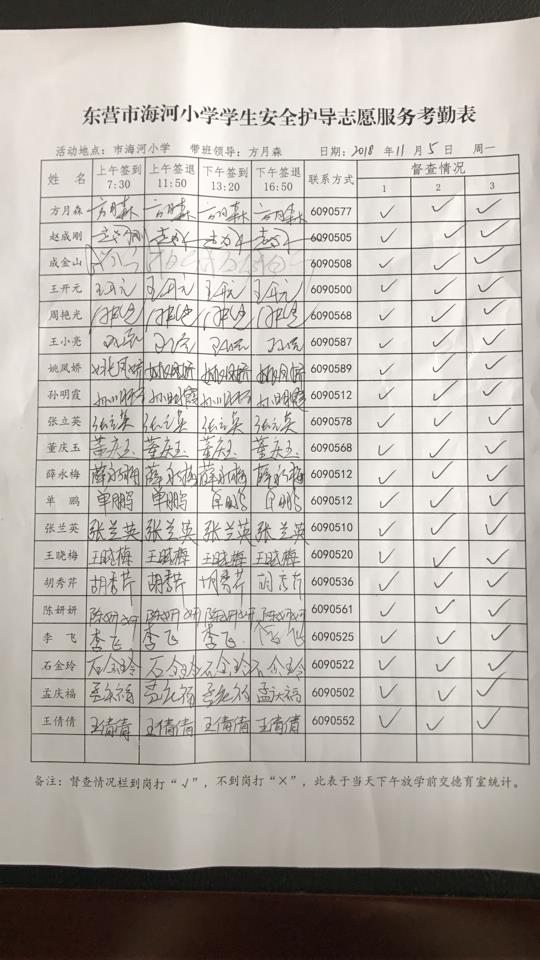 东营市海河小学学生安全护导志愿服务考勤表
活动地点：市海河小学 带班领导：方月森 日期：2018 年 11 月 5 日 周一
姓 名 上午签到 7:30 上午签退 11:50 下午签到 13:20 下午签退 16:50 联系方式 督查情况 1 2 3
方月森 方月森 方月森 方月森 方月森 6090577 ✓ ✓ ✓
赵成刚 6090505 ✓ ✓ ✓
成金山 6090508 ✓ ✓ ✓
王开元 王开元 王开元 王开元 王开元 6090500 ✓ ✓ ✓
周艳光 6090568 ✓ ✓ ✓
王小亮 6090587 ✓ ✓ ✓
姚凤娇 姚凤娇 姚凤娇 姚凤娇 姚凤娇 6090589 ✓ ✓ ✓
孙明霞 孙明霞 孙明霞 孙明霞 孙明霞 6090512 ✓ ✓ ✓
张立英 张立英 张立英 张立英 张立英 6090578 ✓ ✓ ✓
董庆玉 董庆玉 董庆玉 董庆玉 董庆玉 6090568 ✓ ✓ ✓
薛永梅 薛永梅 薛永梅 薛永梅 薛永梅 6090512 ✓ ✓ ✓
单 鹏 单鹏 单鹏 单鹏 单鹏 6090512 ✓ ✓ ✓
张兰英 张兰英 张兰英 张兰英 张兰英 6090510 ✓ ✓ ✓
王晓梅 王晓梅 王晓梅 王晓梅 王晓梅 6090520 ✓ ✓ ✓
胡秀芹 胡秀芹 胡秀芹 胡秀芹 胡秀芹 6090536 ✓ ✓ ✓
陈妍妍 陈妍妍 陈妍妍 陈妍妍 陈妍妍 6090561 ✓ ✓ ✓
李 飞 李飞 李飞 李飞 6090525 ✓ ✓ ✓
石金玲 石金玲 石金玲 石金玲 石金玲 6090522 ✓ ✓ ✓
孟庆福 孟庆福 孟庆福 孟庆福 孟庆福 6090502 ✓ ✓ ✓
王倩倩 王倩倩 王倩倩 王倩倩 王倩倩 6090552 ✓ ✓ ✓
备注：督查情况栏到岗打“√”，不到岗打“×”，此表于当天下午放学前交德育室统计。